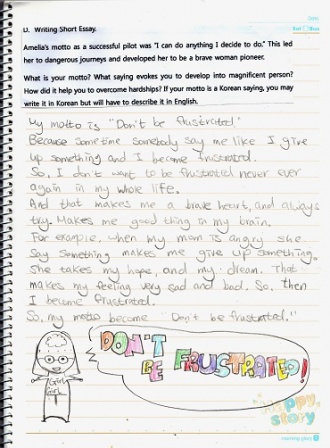 Date.
D. Writing Short Essay.
Amelia's motto as a successful pilot was "I can do anything I decide to do." This led
her to dangerous journeys and developed her to be a brave woman pioneer.
What is your motto? What saying evokes you to develop into magnificent person?
How did it help you to overcome hardships? If your motto is a Korean saying, you may
write it in Korean but will have to describe it in English.
My motto is "Don't be frustrated."
Because sometime somebody say me like I give
up something and I become frustrated.
So, I don't want to be frustrated never ever
again in my whole life.
And that makes me a brave heart, and always
try. Makes me good thing in my brain.
For example, when my mom is angry she
say something makes me give up something.
She takes my hope, and my dream. That
makes my feeling very sad and bad. So, then
I become frustrated.
So, my motto become "Don't be frustrated."
DON'T
BE FRUSTRATED!
Girl
Girl
Happy
story
morning glory